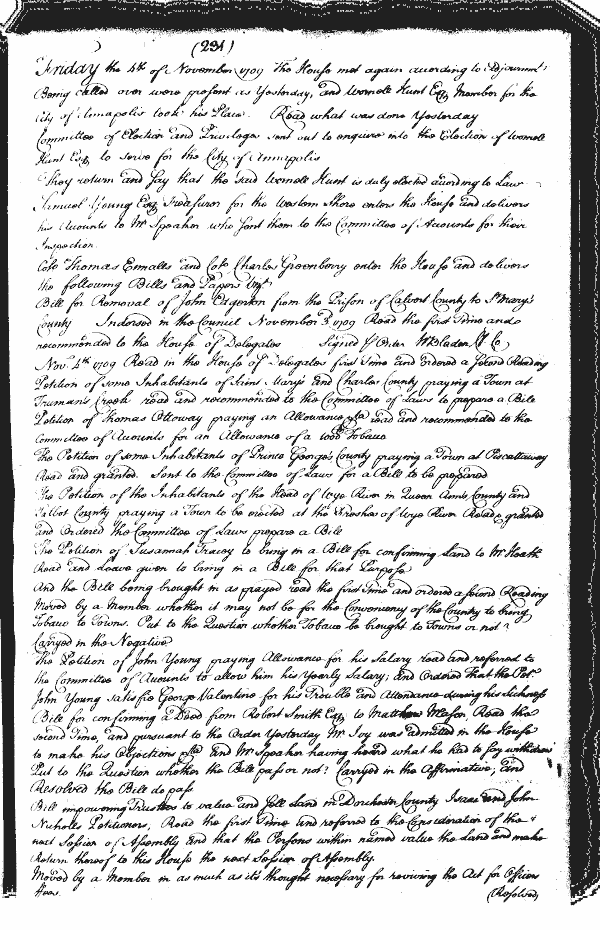 (231)
Friday the 4th of November 1709 The House met again according to Adjournmt:
Being called over were present as Yesterday, and Wornele Hunt Esq. Member for the
City of Annapolis took his Place. Read what was done Yesterday
Committee of Election and Priviledges sent out to enquire into the Election of Wornele
Hunt Esq to serve for the City of Annapolis
They return and say that the said Wornele Hunt is duly elected according to Law
Samuel Young Esq Treasurer for the Western Shore enters the House and delivers
his Accounts to Mr Speaker who sent them to the Committee of Accounts for their
Inspection.
Colo Thomas Ennalls and Colo Charles Greenberry enter the House and delivers
the following Bills and Papers Vizt.
Bill for Removal of John Edgerton from the Prison of Calvert County to St Mary's
County Indorsed in the Council November 3d 1709 Read the first Time and
recommended to the House of Delegates Signed p Order W Bladen Cl Co
Nov. 4th 1709 Read in the House of Delegates first Time and ordered a second Reading
Petition of some Inhabitants of Saint Mary's and Charles County praying a Town at
Truman's Creek read and recommended to the Committee of Laws to prepare a Bill
Petition of Thomas Ottoway praying an Allowance read and recommended to the
Committee of Accounts for an Allowance of a Tobacco
The Petition of some Inhabitants of Prince George's County praying a Town at Piscattaway
Read and granted. Sent to the Committee of Laws for a Bill to be prepared
The Petition of the Inhabitants of the Head of Wye River in Queen Ann's County and
Talbot County praying a Town to be erected at the Freshes of Wye River Read & granted
and Ordered the Committee of Laws prepare a Bill
The Petition of Susannah Tracey to bring in a Bill for confirming Land to Mr Heath
Read and Leave given to bring in a Bill for that Purpose
And the Bill being brought in as prayed read the first Time and ordered a second Reading
Moved by a Member whether it may not be for the Conveniency of the County to bring
Tobacco to Towns. Put to the Question whether Tobacco be brought to Towns or not?
Carryed in the Negative
The Petition of John Young praying Allowance for his Salary read and referred to
the Committee of Accounts to allow him his Yearly Salary; and Ordered That the Petr
John Young satisfie George Valentine for his Trouble and Attendance during his Sickness
Bill for confirming a Deed from Robert Smith Esq to Matthew Mason. Read the
second Time, and pursuant to the Order Yesterday Mr Joy was admitted in the House
to make his Objections and Mr Speaker having heard what he had to say withdrew
Put to the Question whether the Bill pass or not? Carryed in the Affirmative; and
Resolved the Bill do pass
Bill impowering Trustees to value and sell Land in Dorchester County Isaac and John
Nicholls Petitioners, Read the first Time and referred to the Consideration of the
next Session of Assembly and that the Persons within named value the Land and make
Return thereof to this House the next Session of Assembly.
Moved by a Member in as much as it's thought necessary for reviving the Act for Officers
Fees.
(Resolved